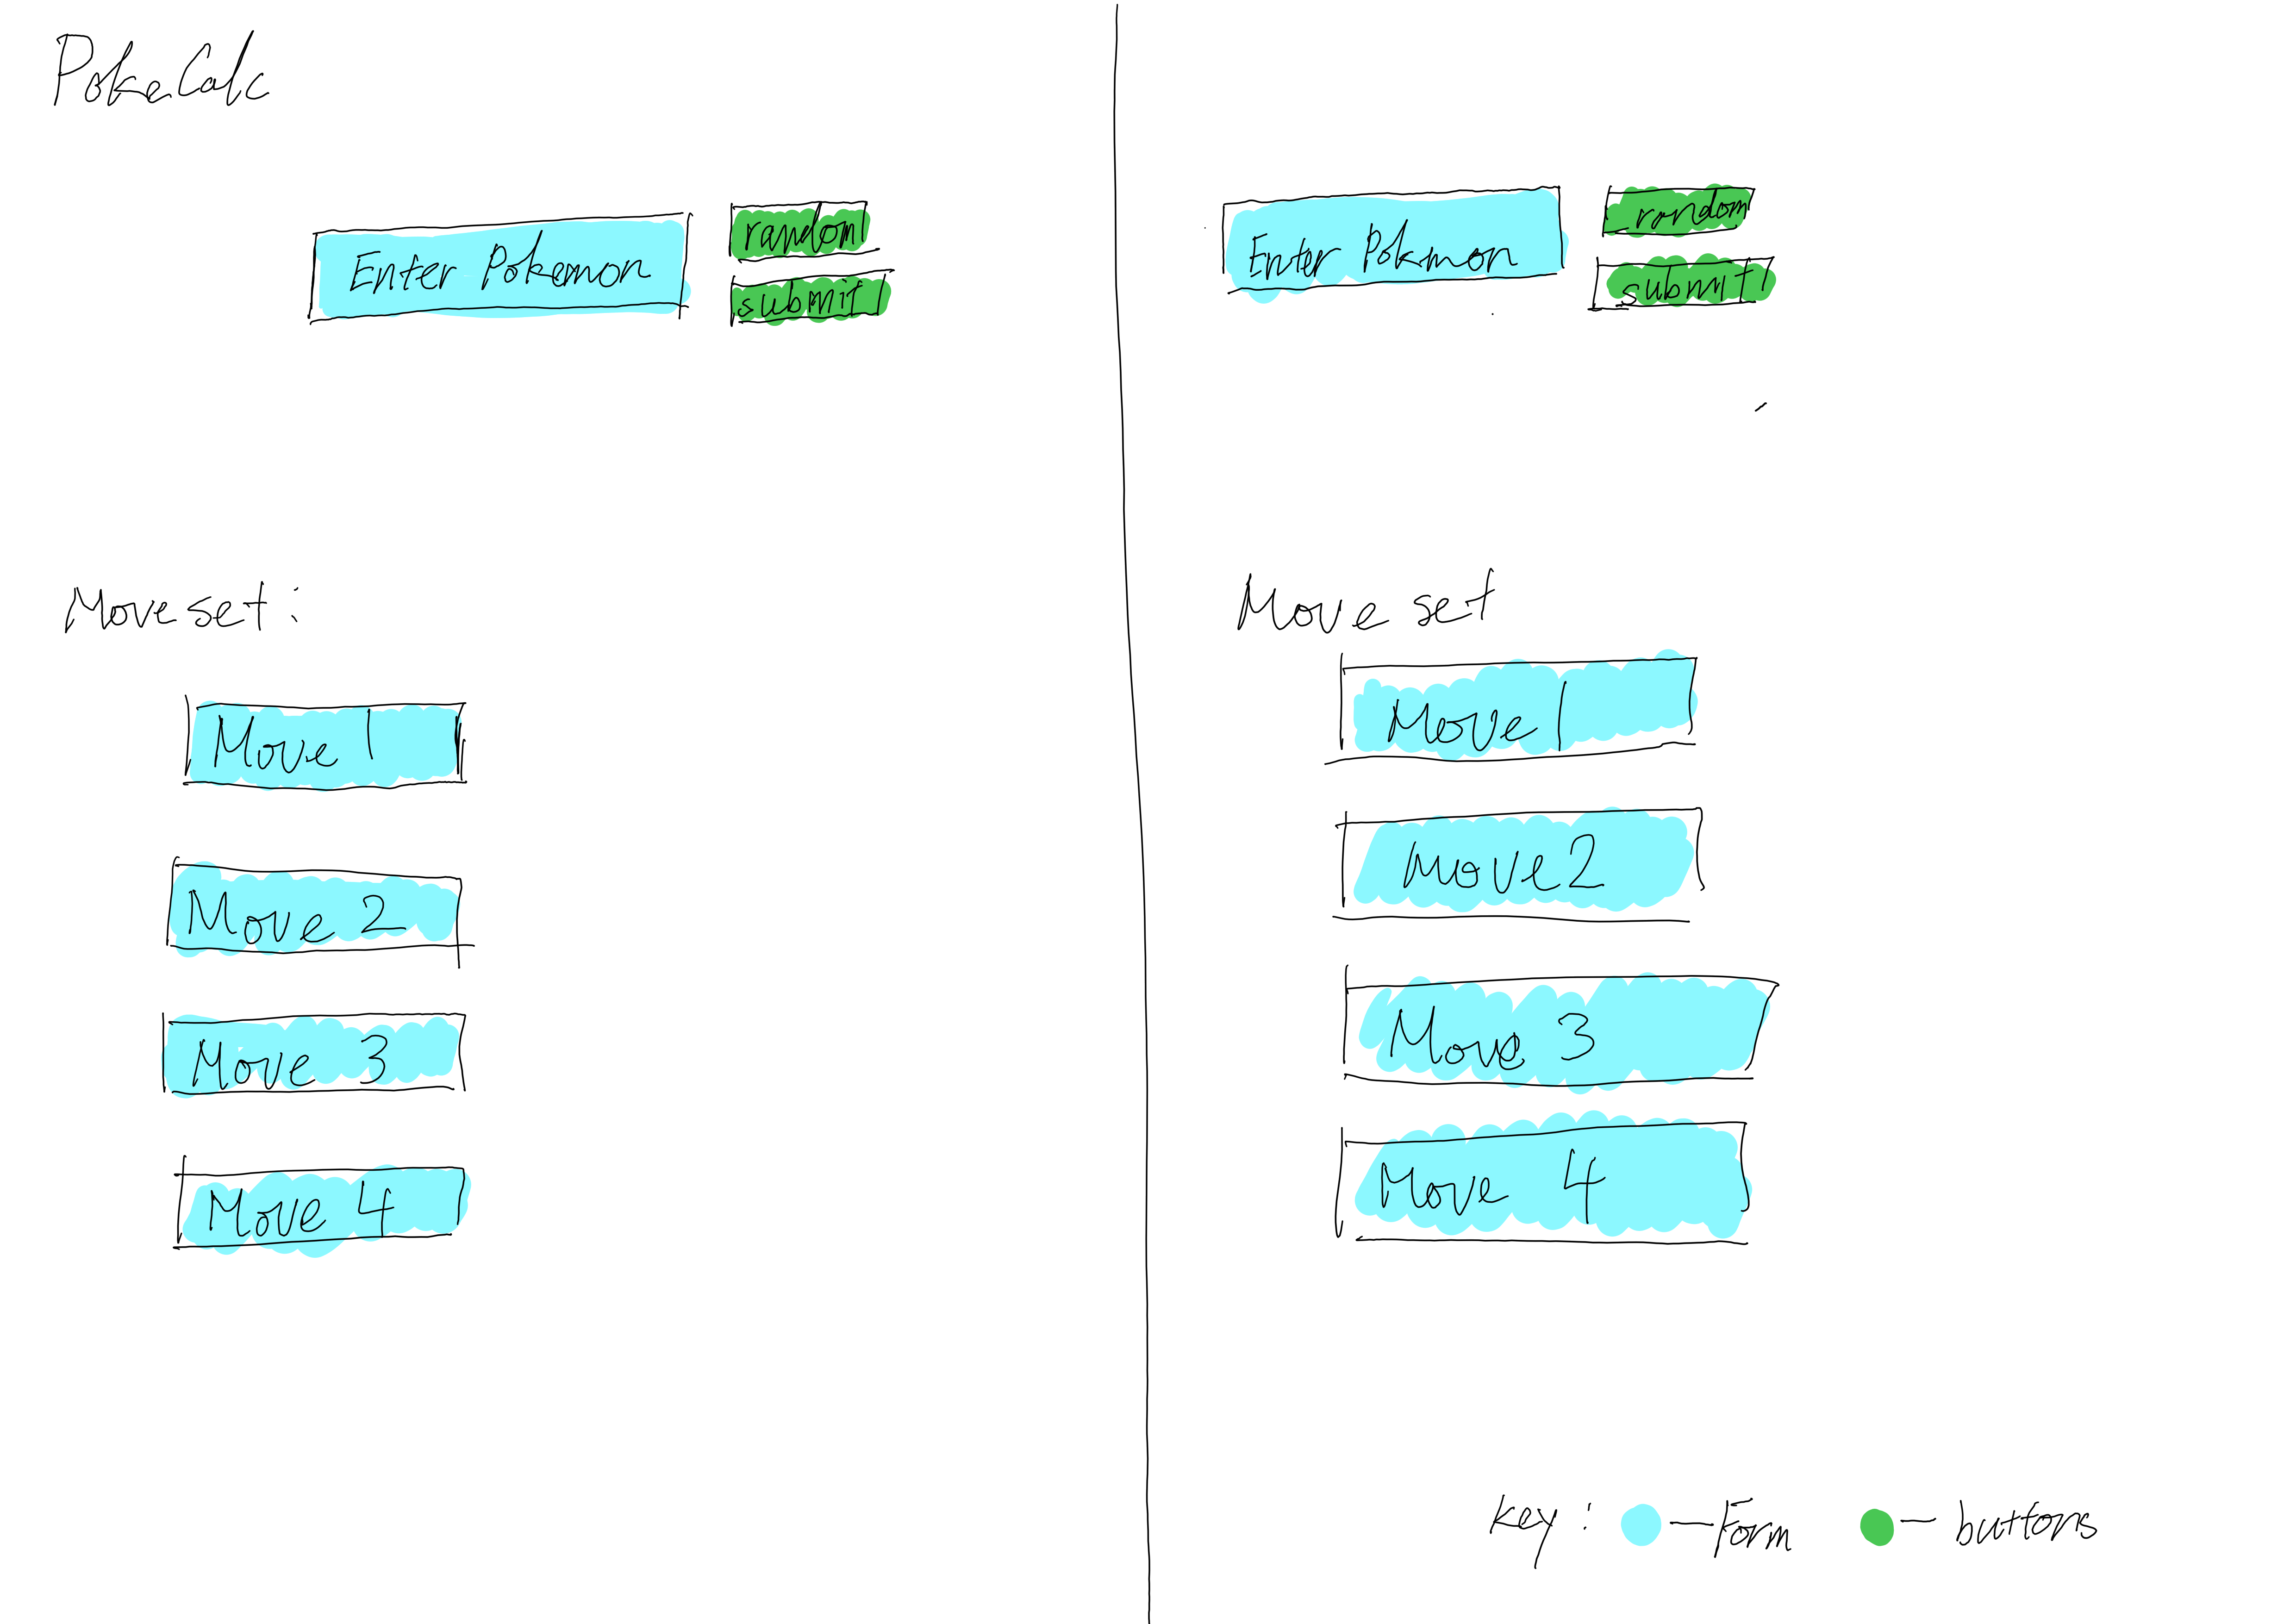 PokeCalc
Enter Pokemon
random
submit
Moveset:
Move 1
Move 2
Move 3
Move 4
Enter Pokmon
random
submit
Move set
Move 1
Move 2
Move 3
Move 4
key: — Form — buttons